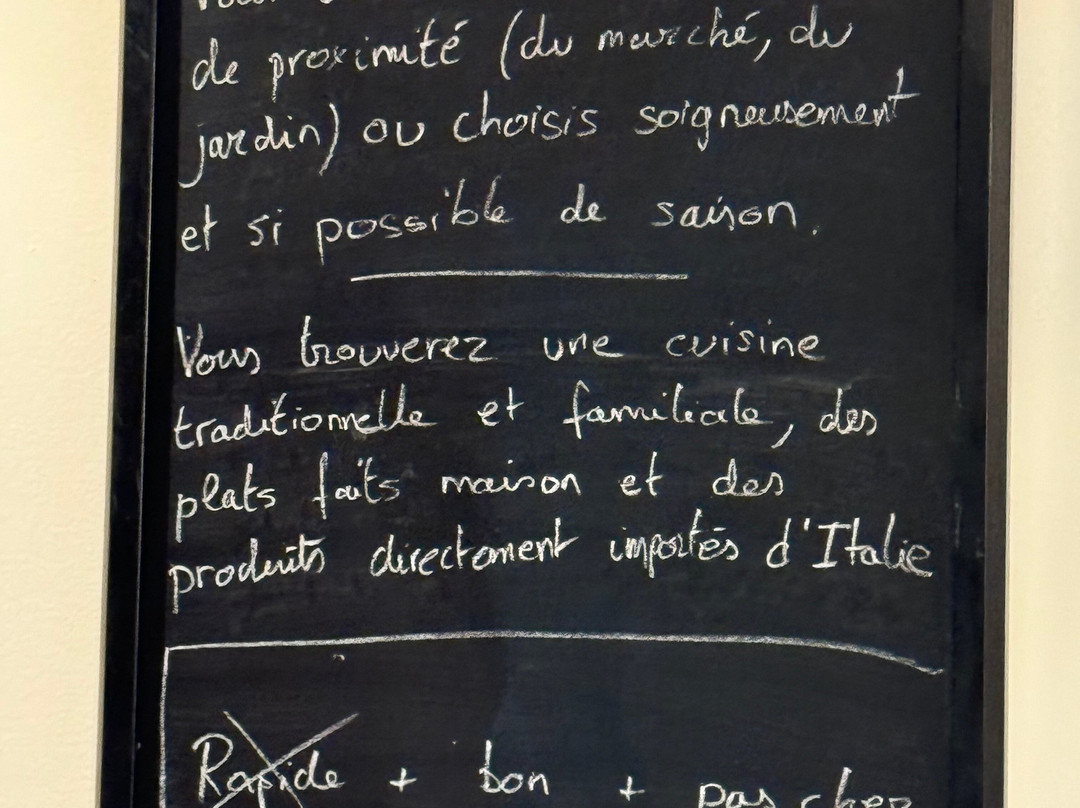 de proximité (du marché, du
jardin) ou choisis soigneusement
et si possible de saison.
Vous trouverez une cuisine
traditionnelle et familiale, des
plats faits maison et des
produits directement importés d'Italie
Rapide + bon + pas cher